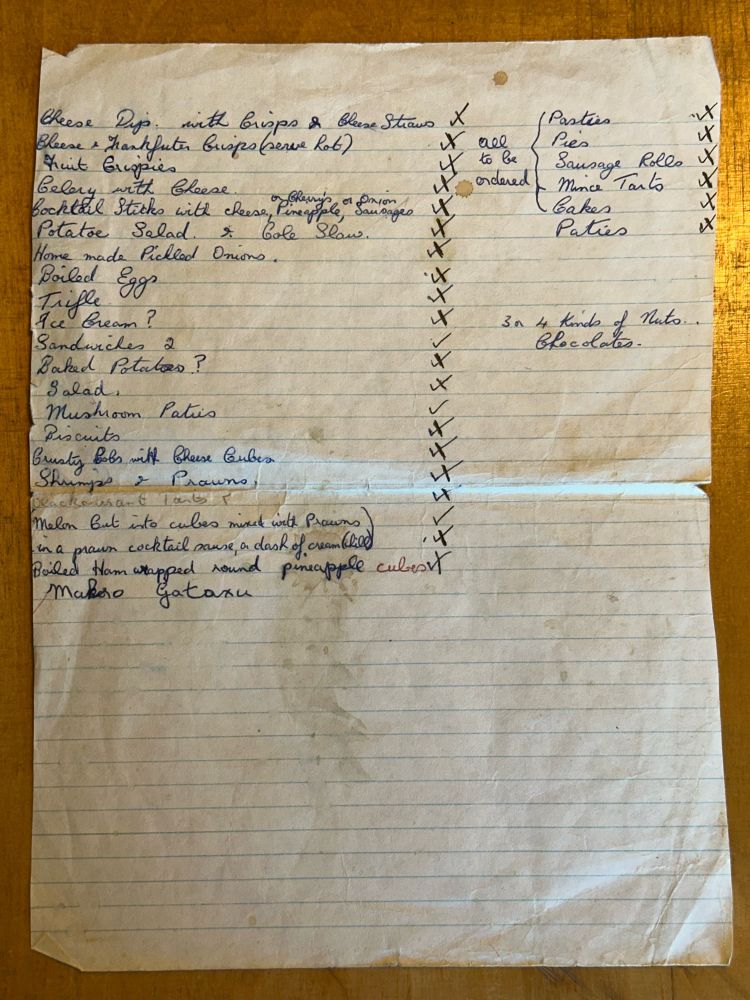 Cheese Dip. with Crisps & Cheese Straws
Cheese & Frankfuter Crisps (serve hot)
Fruit Crispies
Celery with Cheese.
or Cherrys or Onion
Cocktail Sticks with cheese, Pineapple, Sausages
Potatoe Salad. & Cole Slaw.
Home made Pickled Onions.
Boiled Eggs
Trifle
Ice Cream?
Sandwiches 2
Baked Potatoes?
Salad.
Mushroom Paties
Biscuits
Crusty Cobs with Cheese Cubes
Shrimps & Prawns.
Blackcurrant Tarts ?
Melon Cut into cubes mixed with Prawns
in a prawn cocktail sause, a dash of cream (chill)
Boiled Ham wrapped round pineapple cubes
Makro
all
to be
ordered
Pasties
Pies
Sausage Rolls
Mince Tarts
Cakes
Paties
3 or 4 Kinds of Nuts..
Chocolates.